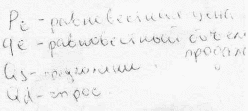 Pe - равновесная цена
qe - равновесный объем
продаж
Qs -
Qd - спрос